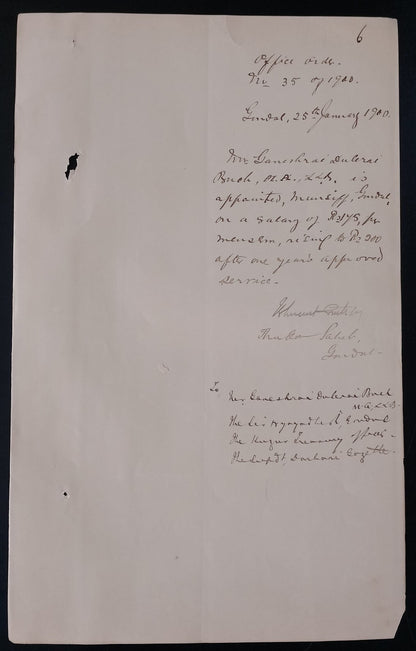 6
Office Order.
No 35 of 1900.
Gondal, 25th January 1900.
Mr Ganeshrai Dulerai
Buch, M.A., LL.B. is
appointed, Munsiff, Gondal,
on a salary of Rs 175, per
mensem, rising to Rs 200
after one year's approved
service.
Thakor Saheb,
Gondal.
To
Mr. Ganeshrai Dulerai Buch
M.A., LL.B.
The Sir Nyayadhish, Gondal
The Huzur Treasury officer
The Supdt, Darbari Gazette.